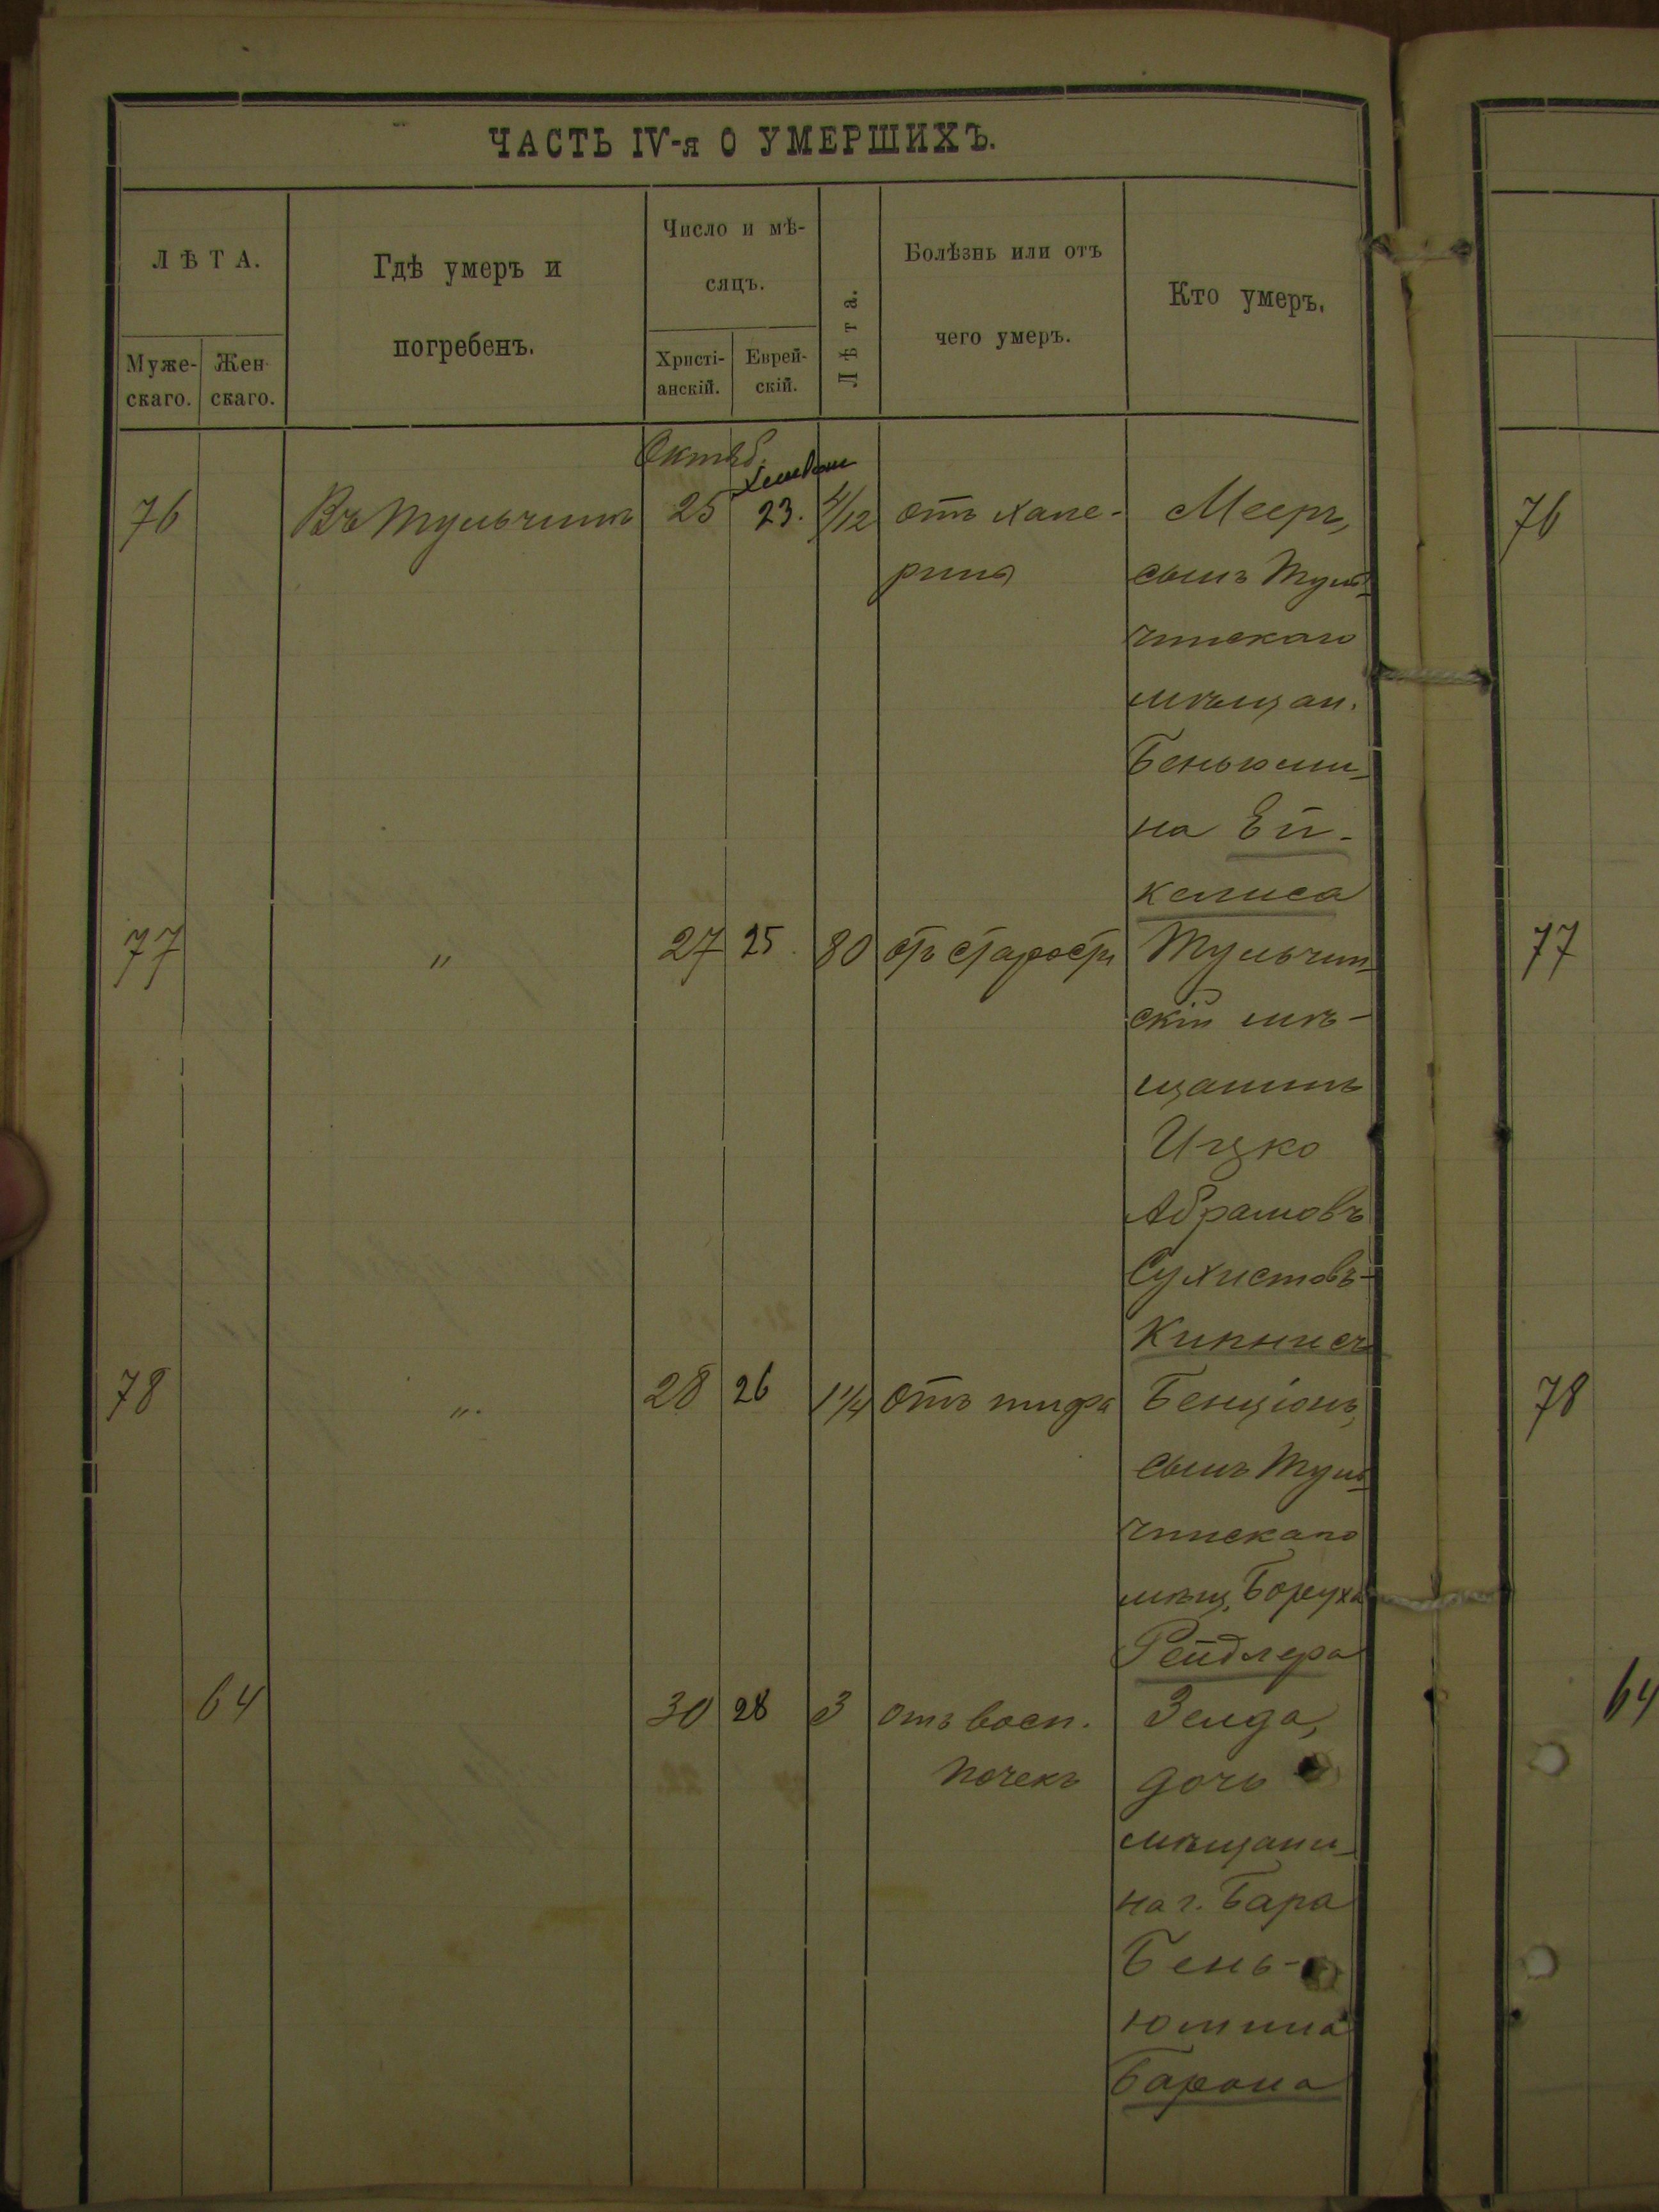 ЧАСТЬ IV-я О УМЕРШИХЪ.
ЛѢТА.
Муже-
скаго.
Жен-
скаго.
Гдѣ умеръ и
погребенъ.
Число и мѣ-
сяцъ.
Христі-
анскій.
Еврей-
скій.
Лѣта.
Болѣзнь или отъ
чего умеръ.
Кто умеръ.
Октяб.
Хешван
76 Въ Тульчинѣ 25 23. 4/12 отъ хапе- Мееръ, 76
рина сынъ Туль-
чинскаго
мѣщан.
Беньюми-
на Ей-
келиса
77 " 27 25. 80 отъ старости Тульчин- 77
скій мѣ-
щанинъ
Ицко
Абрамовъ
Сухистовъ-
Кипнисъ
78 ". 28 26 1 1/4 Отъ тифа Бенціонъ, 78
сынъ Туль-
чинскаго
мѣщ. Боруха
Рейдлера
64 30 28 3 отъ восп. Зелда, 64
почекъ дочь
мѣщани-
на г. Бара
Бень-
юмина
Барона